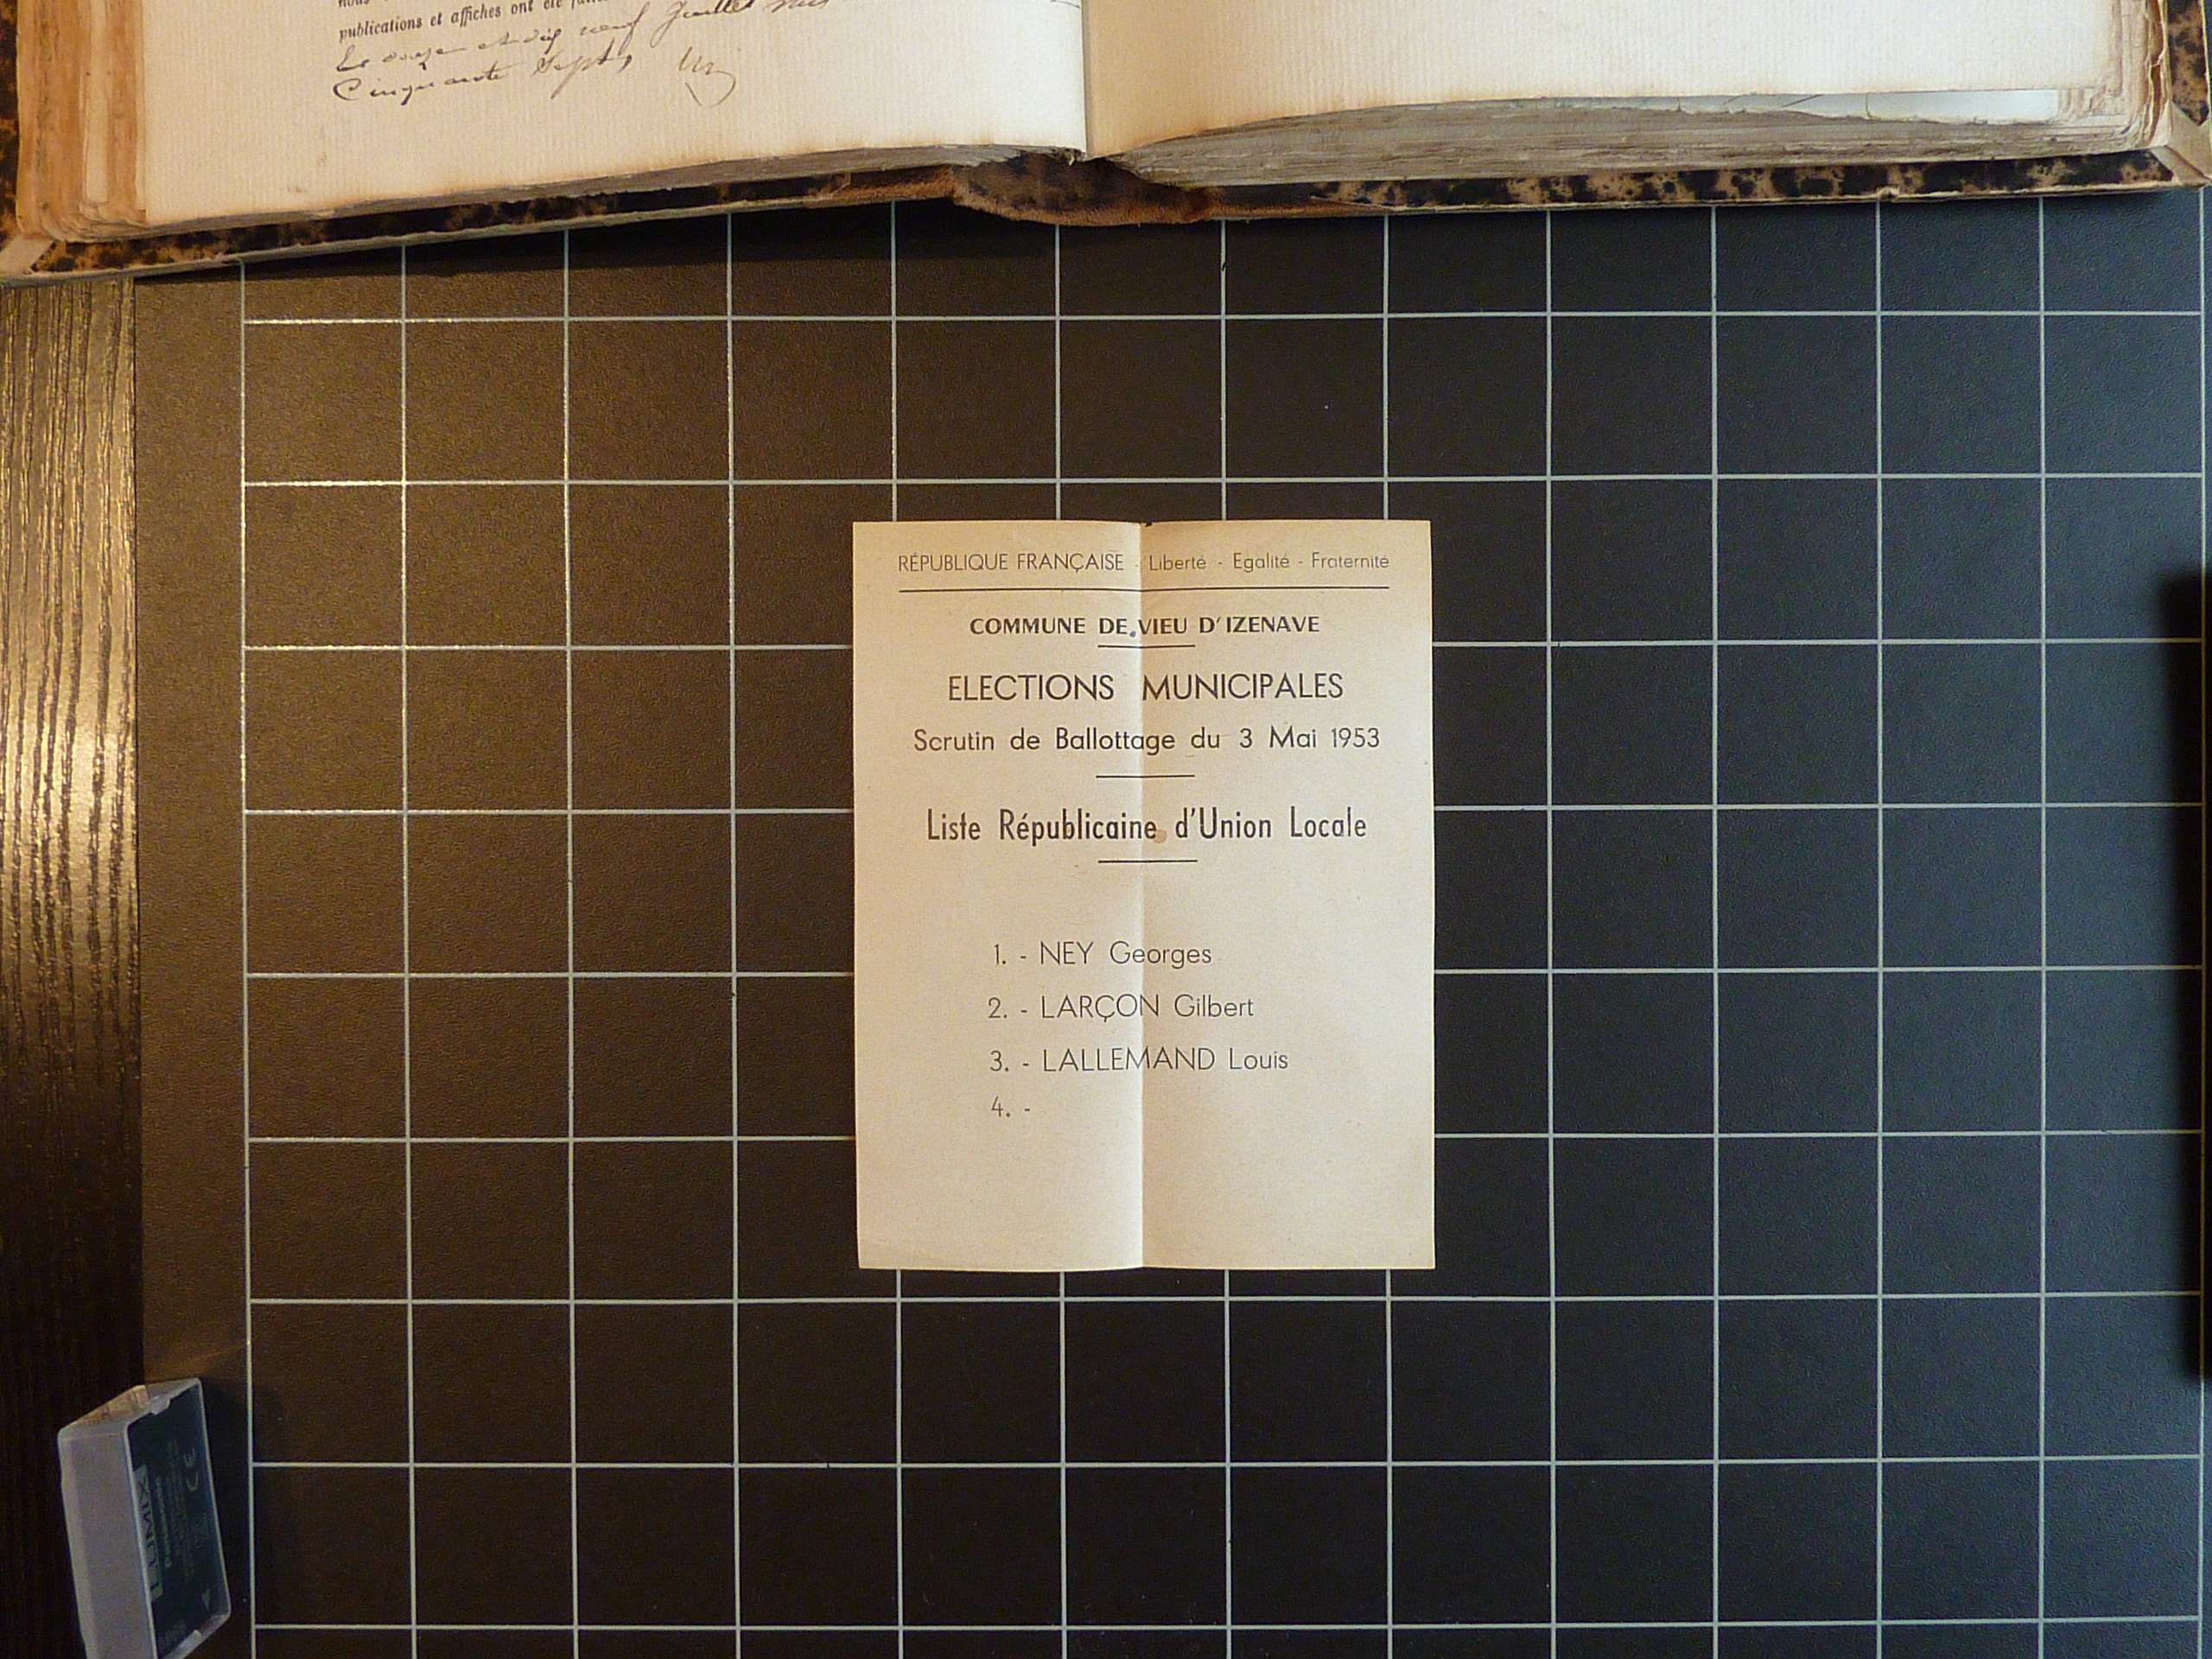 publications et affiches ont été
Le onze et dix neuf Juillet mil
Cinquante Sept
RÉPUBLIQUE FRANÇAISE - Liberté - Egalité - Fraternité
COMMUNE DE VIEU D'IZENAVE
ELECTIONS MUNICIPALES
Scrutin de Ballottage du 3 Mai 1953
Liste Républicaine d'Union Locale
1. - NEY Georges
2. - LARÇON Gilbert
3. - LALLEMAND Louis
4. -
LUMIX
Panasonic
CE